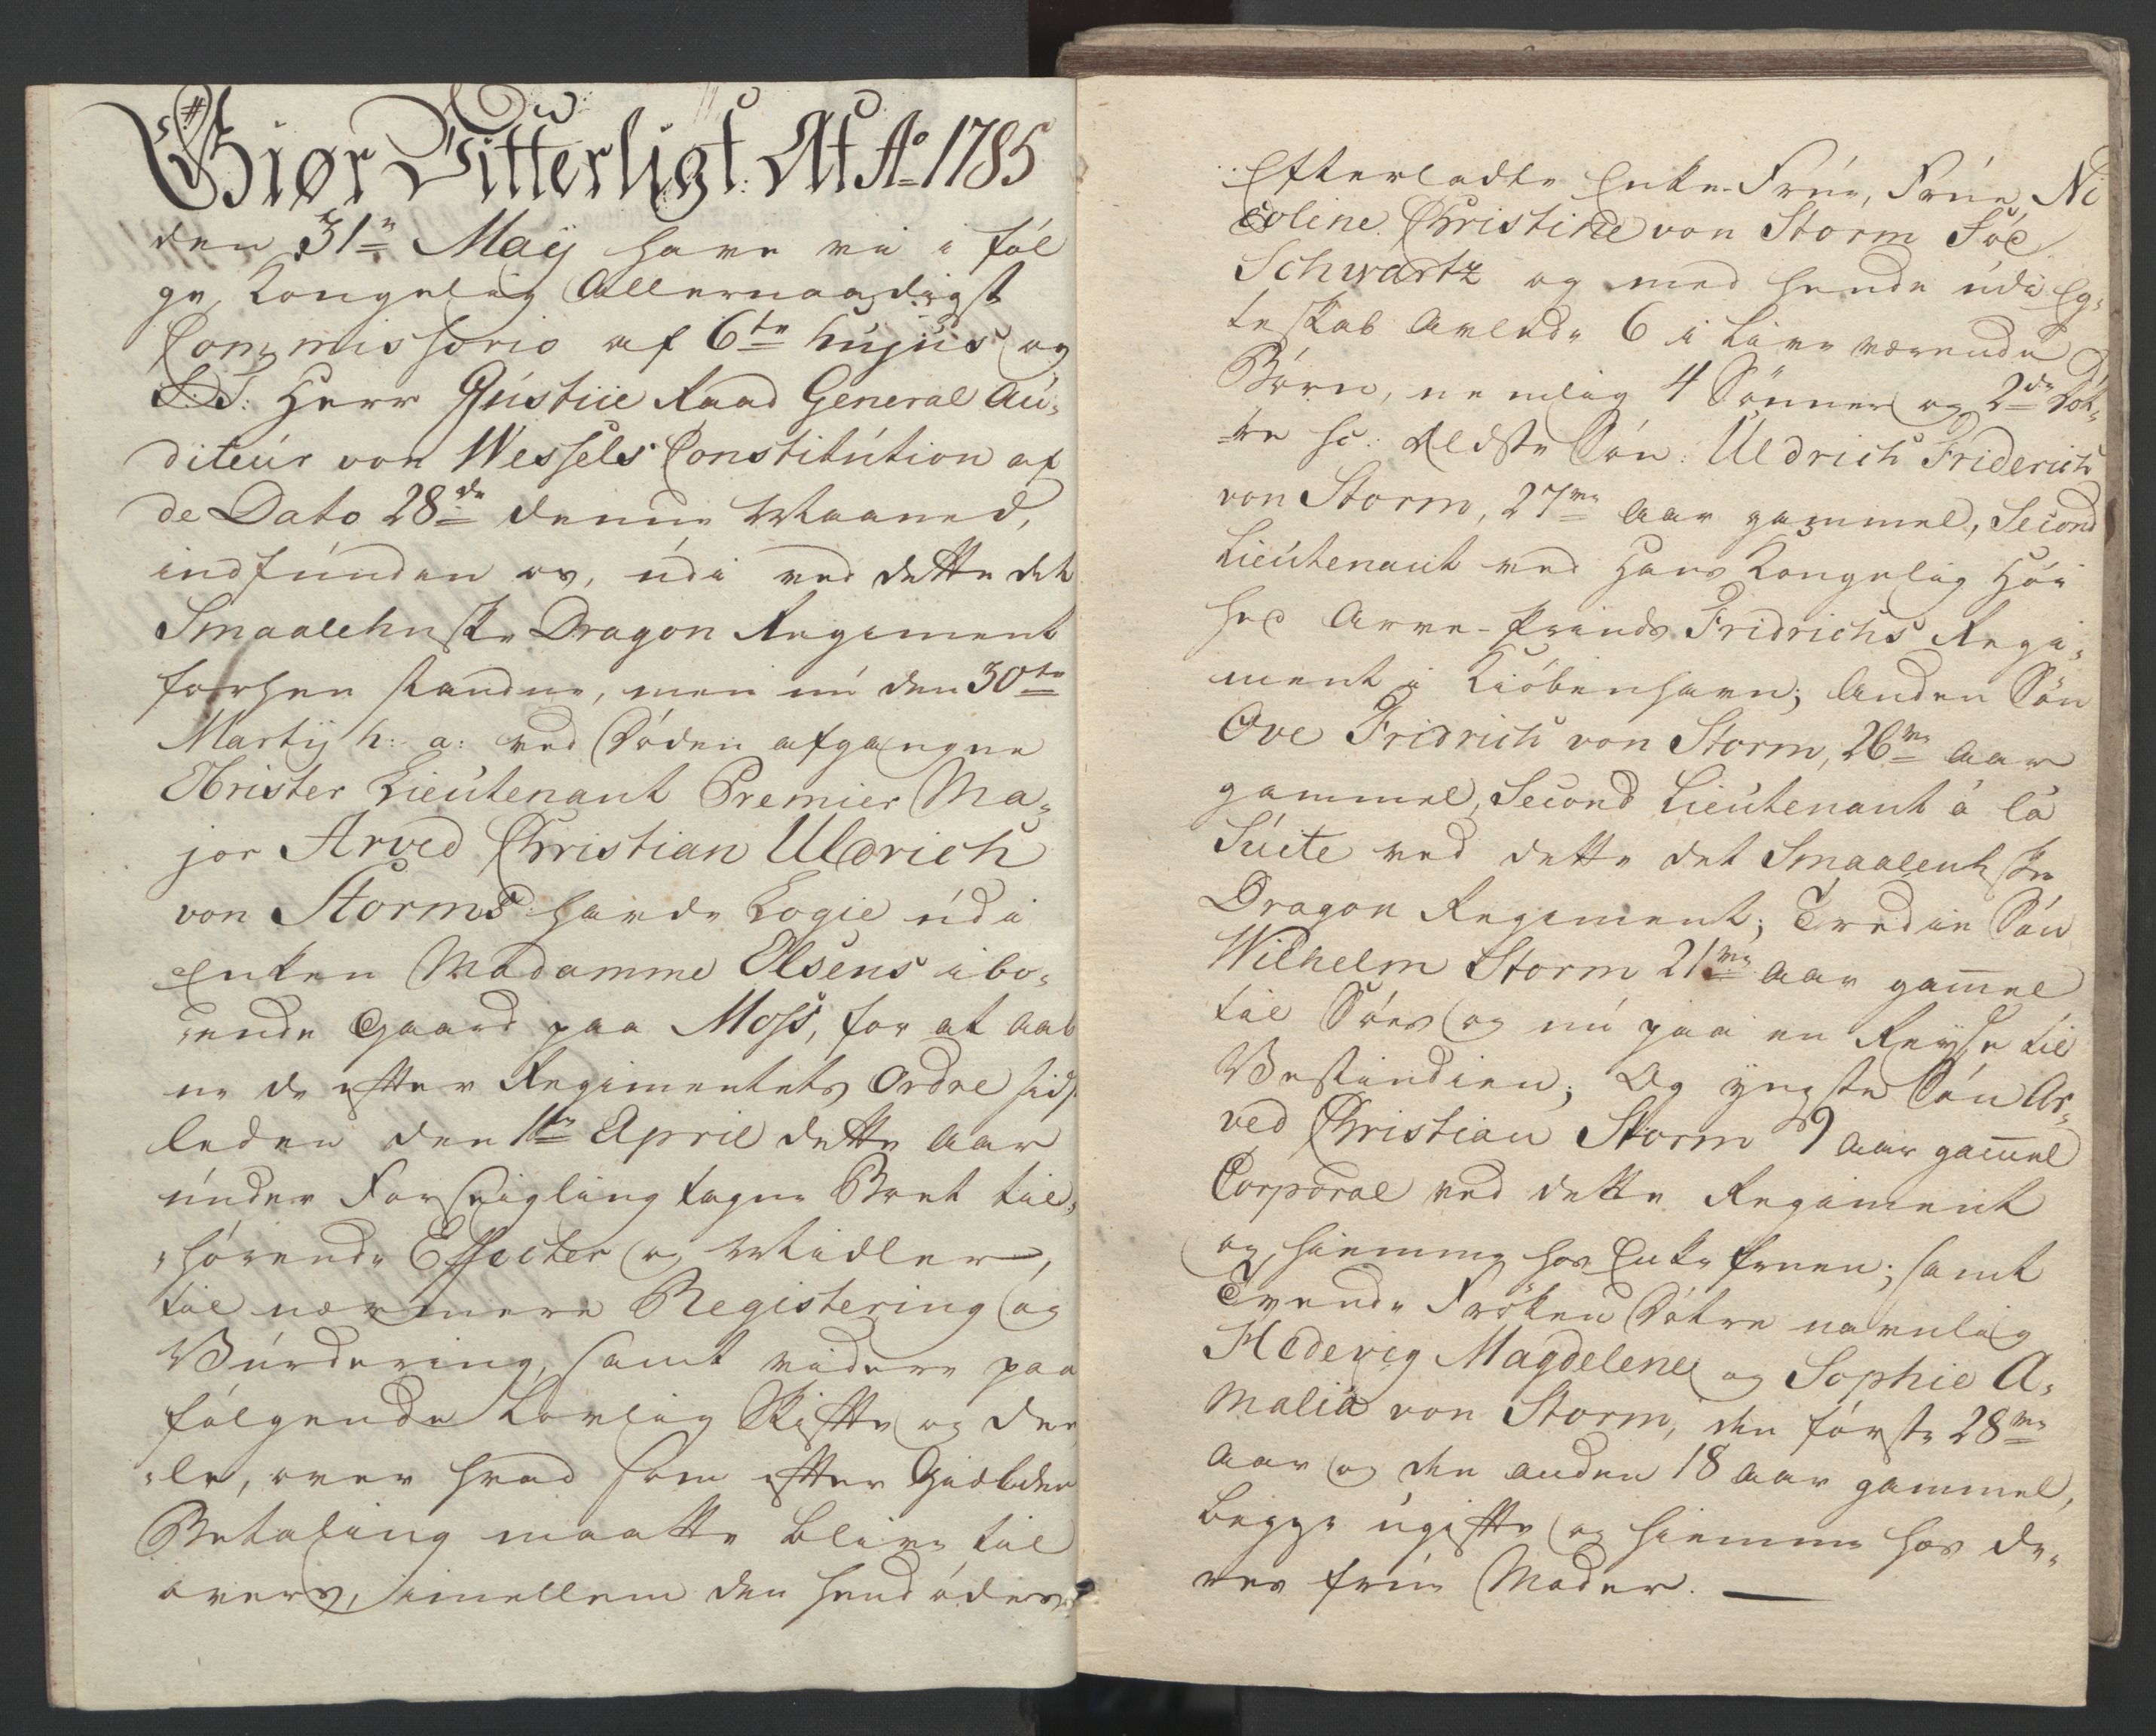 Giør Vitterligt: At Ao 1785
den 31te Maij have vi i føl
ge Kongelig Allernaadigst
Commissorio af 6te hujus og
S. T. Herr Justice Raad General Au-
diteur von Wessels Constitution af
de Dato 28de denne Maaned,
indfunden os, udi ved dette det
Smaalehnske Dragon Regiment
forhen staaende, men nu den 30te
Martij h: a: ved Døden afgangne
Obrister Lieutenant Premier Ma-
jor Arved Christian Uldrich
von Storms havde Logie udi
Enken Madamme Olsens ibo-
ende Gaard paa Moss, for at aab
ne de efter Regimentets Ordre sidst
leden den 1te April dette Aar
under Forseigling tagne Boet til-
hørende Effecter og Midler,
til nærmere Registering og
Vurdering, samt videre paa
følgende Lovlig Skifte og dee
le, over hvad som efter Gielders
Betaling maatte blive til
overs, imellem den hendødes
Efterladte Enke-Frue, Frue Ni
coline Christine von Storm Fød
Schwartz og med hende udi Eg-
teskab Avlede 6 i Live værende
Børn, nemlig 4 Sønner og 2de Døt-
re sc: Eldste Søn: Uldrich Friderich
von Storm, 27ve Aar gammel, Second
Lieutenant ved Hans Kongelig Høi
hed Arve-Prinds Fridrichs Regi-
ment i Kiøbenhavn; Anden Søn
Ove Fridrich von Storm, 26ve Aar
gammel, Second Lieutenant á la
Suite ved dette det Smaalenhske
Dragon Regiment; Tredie Søn
Wilhelm Storm 21ve Aar gam̄el
til Søes og nu paa en Reyse til
Vestindien; Og yngste Søn Ar-
ved Christian Storm 9 Aar gam̄el
Corporal ved dette Regiment
og hiemme hos Enke Fruen; samt
Tvende Frøken Døtre navnlig
Hedevig Magdelene og Sophie A-
malia von Storm, den første 28ve
Aar og den anden 18 Aar gammel,
begge ugifte og hiemme hos de-
res Frue Moder. —